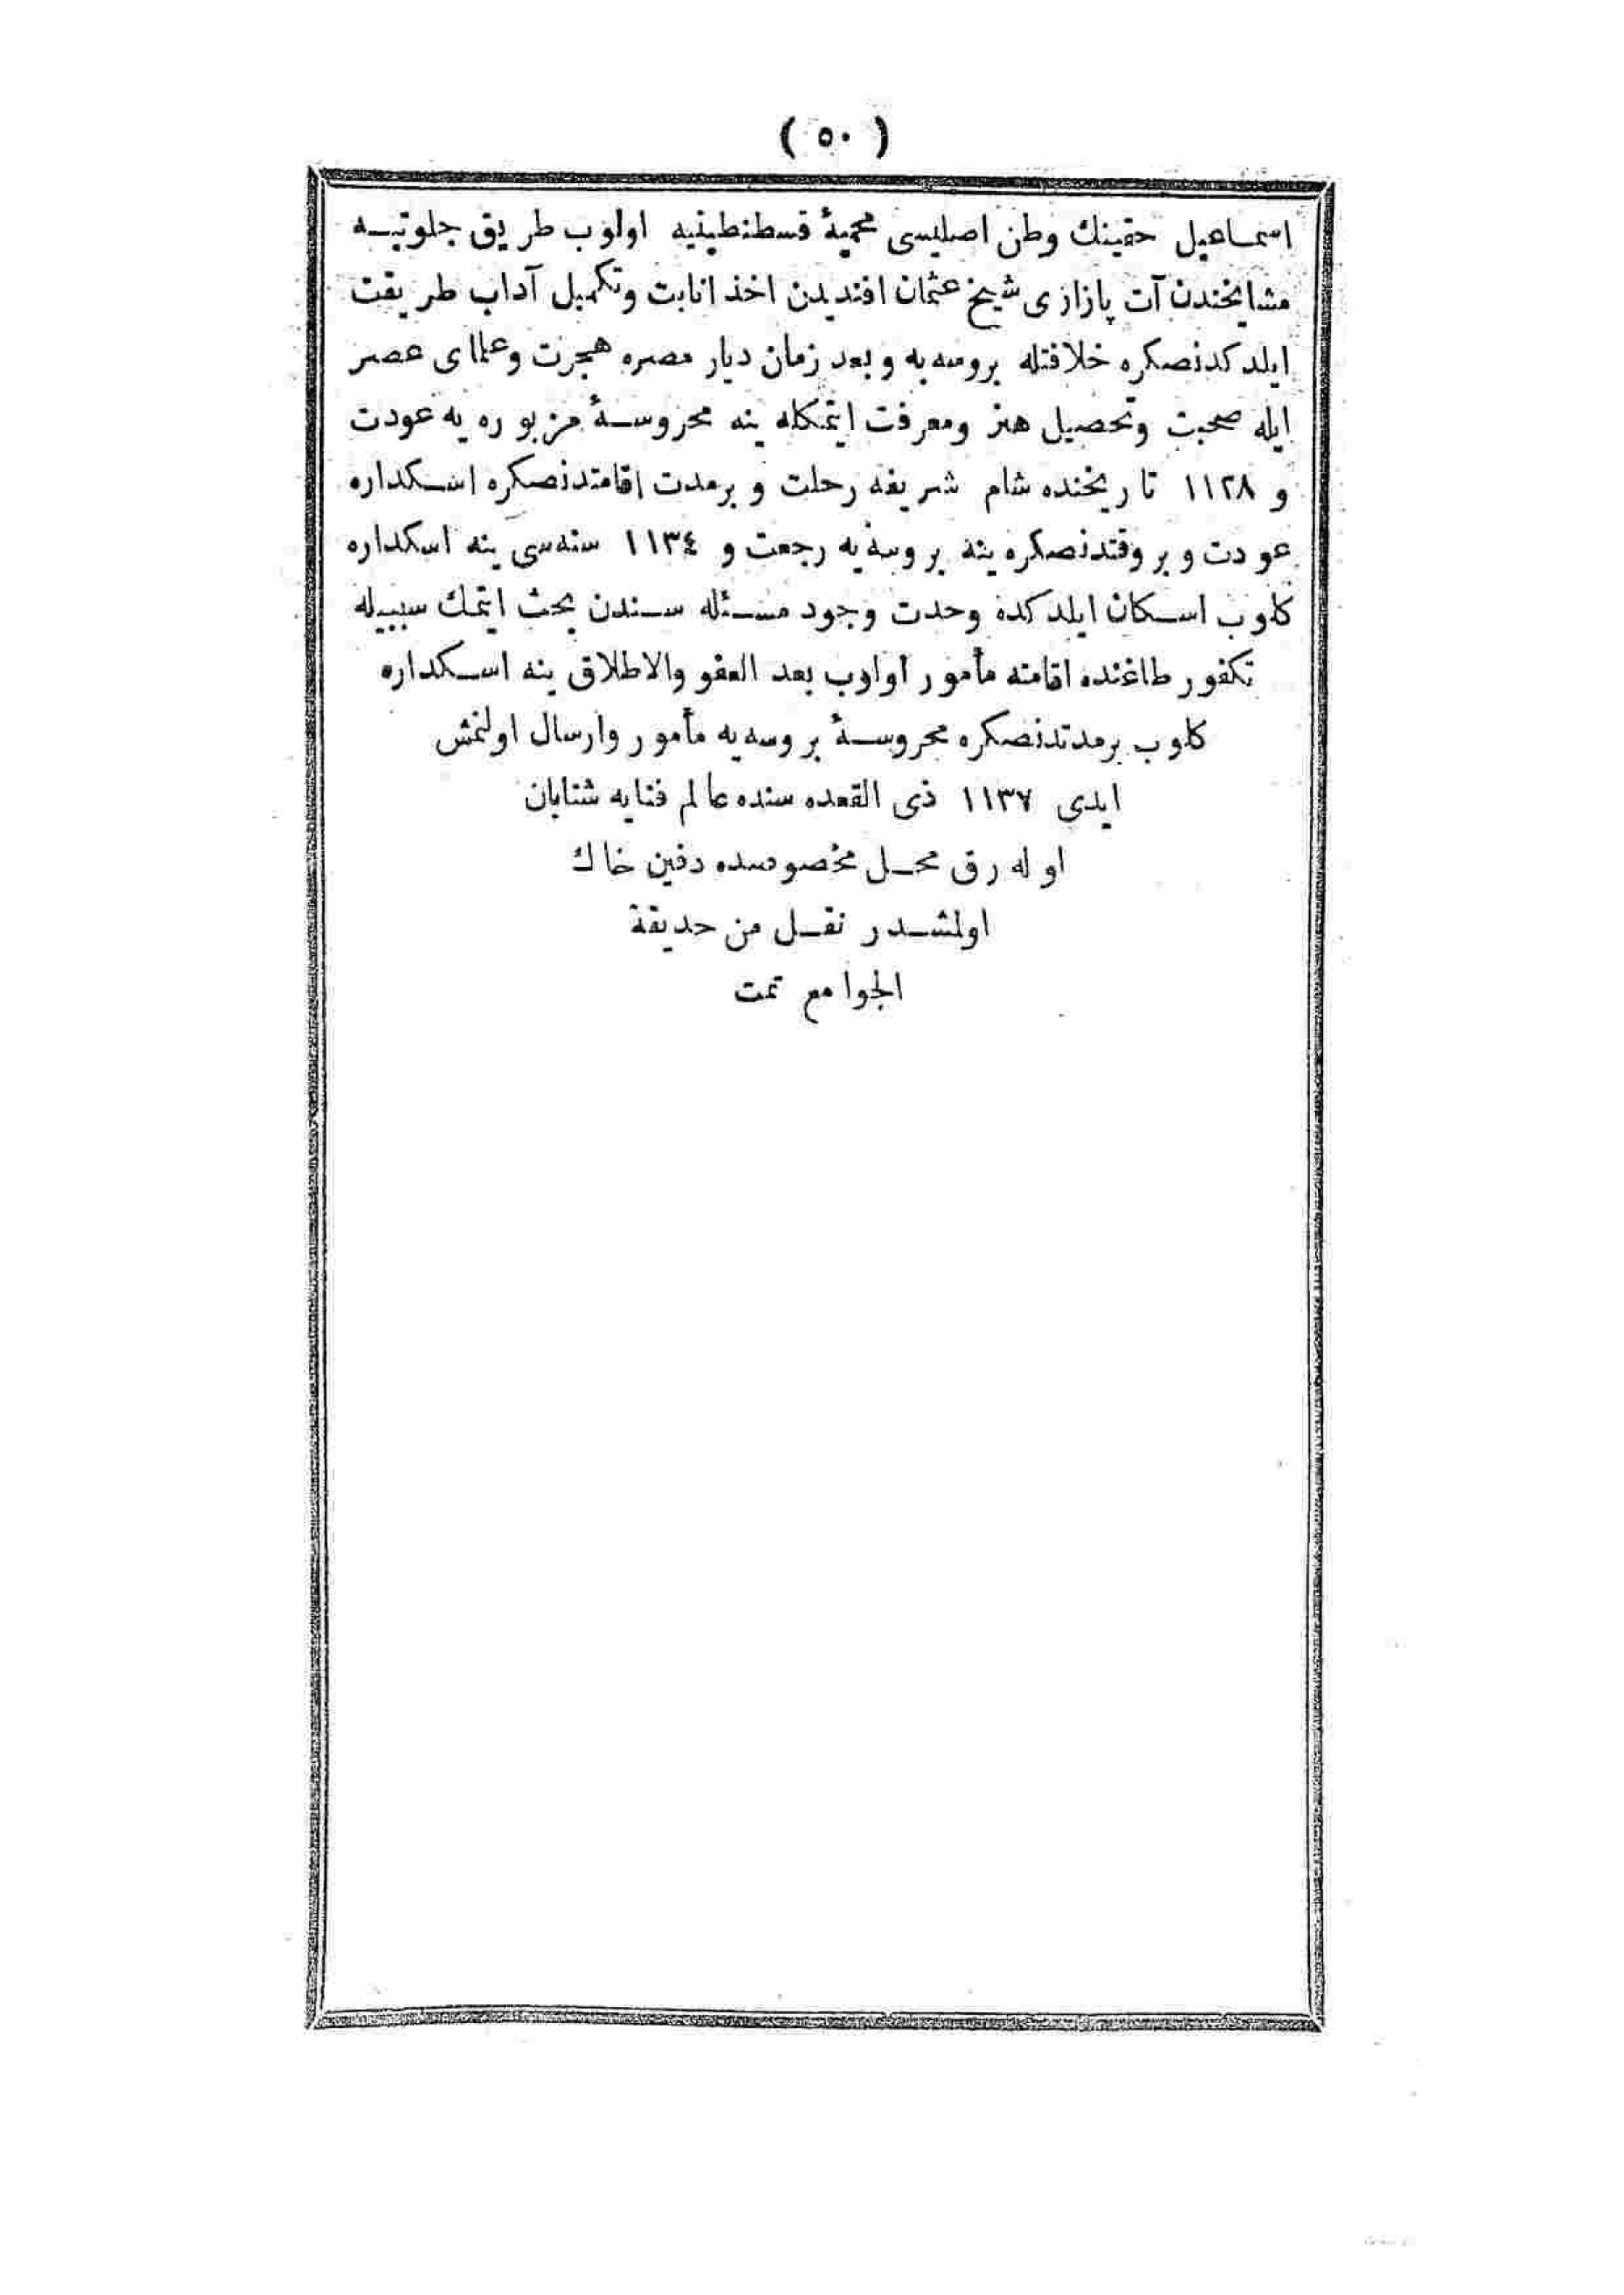 ( ٥٠ )
اسماعيل حقينك وطن اصليسى محميهٔ قسطنطينيه اولوب طريق جلوتيه
مشايخندن آت پازارى شيخ عثمان افنديدن اخذ انابت وتكميل آداب طريقت
ايلدكدنصكره خلافتله بروسه يه وبعد زمان ديار مصره هجرت وعلماى عصر
ايله صحبت وتحصيل هنر ومعرفت ايتمكله ينه محروسهٔ مزبوره يه عودت
و ١١٢٨ تاريخنده شام شريفه رحلت و برمدت اقامتدنصكره اسكداره
عودت و بروقتدنصكره ينه بروسه يه رجعت و ١١٣٤ سنه سى ينه اسكداره
كلوب اسكان ايلدكده وحدت وجود مسئله سندن بحث ايتمك سببيله
تكفور طاغنده اقامته مأمور اولوب بعد العفو والاطلاق ينه اسكداره
كلوب برمدتدنصكره محروسهٔ بروسه يه مأمور وارسال اولنمش
ايدى ١١٣٧ ذى القعده سنده عالم فنايه شتابان
اوله رق محل مخصوصنده دفين خاك
اولمشدر نقل من حديقة
الجوامع تمت